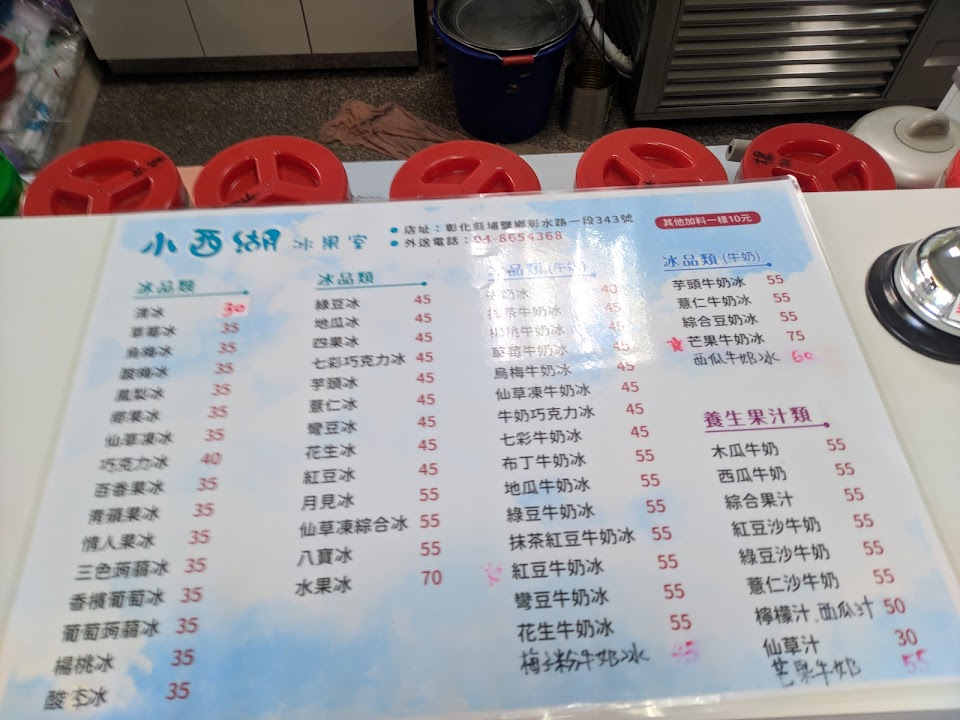 小西湖 冰果室
店址：彰化縣埔鹽鄉彰水路一段343號
外送電話：04-8654368
其他加料一樣10元
冰品類
清冰 30
草莓冰 35
烏梅冰 35
酸梅冰 35
鳳梨冰 35
椰果冰 35
仙草凍冰 35
巧克力冰 40
百香果冰 35
青蘋果冰 35
情人果冰 35
三色蒟蒻冰 35
香檳葡萄冰 35
葡萄蒟蒻冰 35
楊桃冰 35
酸李冰 35
冰品類
綠豆冰 45
地瓜冰 45
四果冰 45
七彩巧克力冰 45
芋頭冰 45
薏仁冰 45
彎豆冰 45
花生冰 45
紅豆冰 45
月見冰 55
仙草凍綜合冰 55
八寶冰 55
水果冰 70
冰品類 (牛奶)
牛奶冰 40
抹茶牛奶冰 45
楊桃牛奶冰 45
草莓牛奶冰 45
烏梅牛奶冰 45
仙草凍牛奶冰 45
牛奶巧克力冰 45
七彩牛奶冰 45
布丁牛奶冰 55
地瓜牛奶冰 55
綠豆牛奶冰 55
抹茶紅豆牛奶冰 55
紅豆牛奶冰 55
彎豆牛奶冰 55
花生牛奶冰 55
梅子粉牛奶冰 45
冰品類 (牛奶)
芋頭牛奶冰 55
薏仁牛奶冰 55
綜合豆奶冰 55
芒果牛奶冰 75
西瓜牛奶冰 60
養生果汁類
木瓜牛奶 55
西瓜牛奶 55
綜合果汁 55
紅豆沙牛奶 55
綠豆沙牛奶 55
薏仁沙牛奶 55
檸檬汁、西瓜汁 50
仙草汁 30
芒果牛奶 55